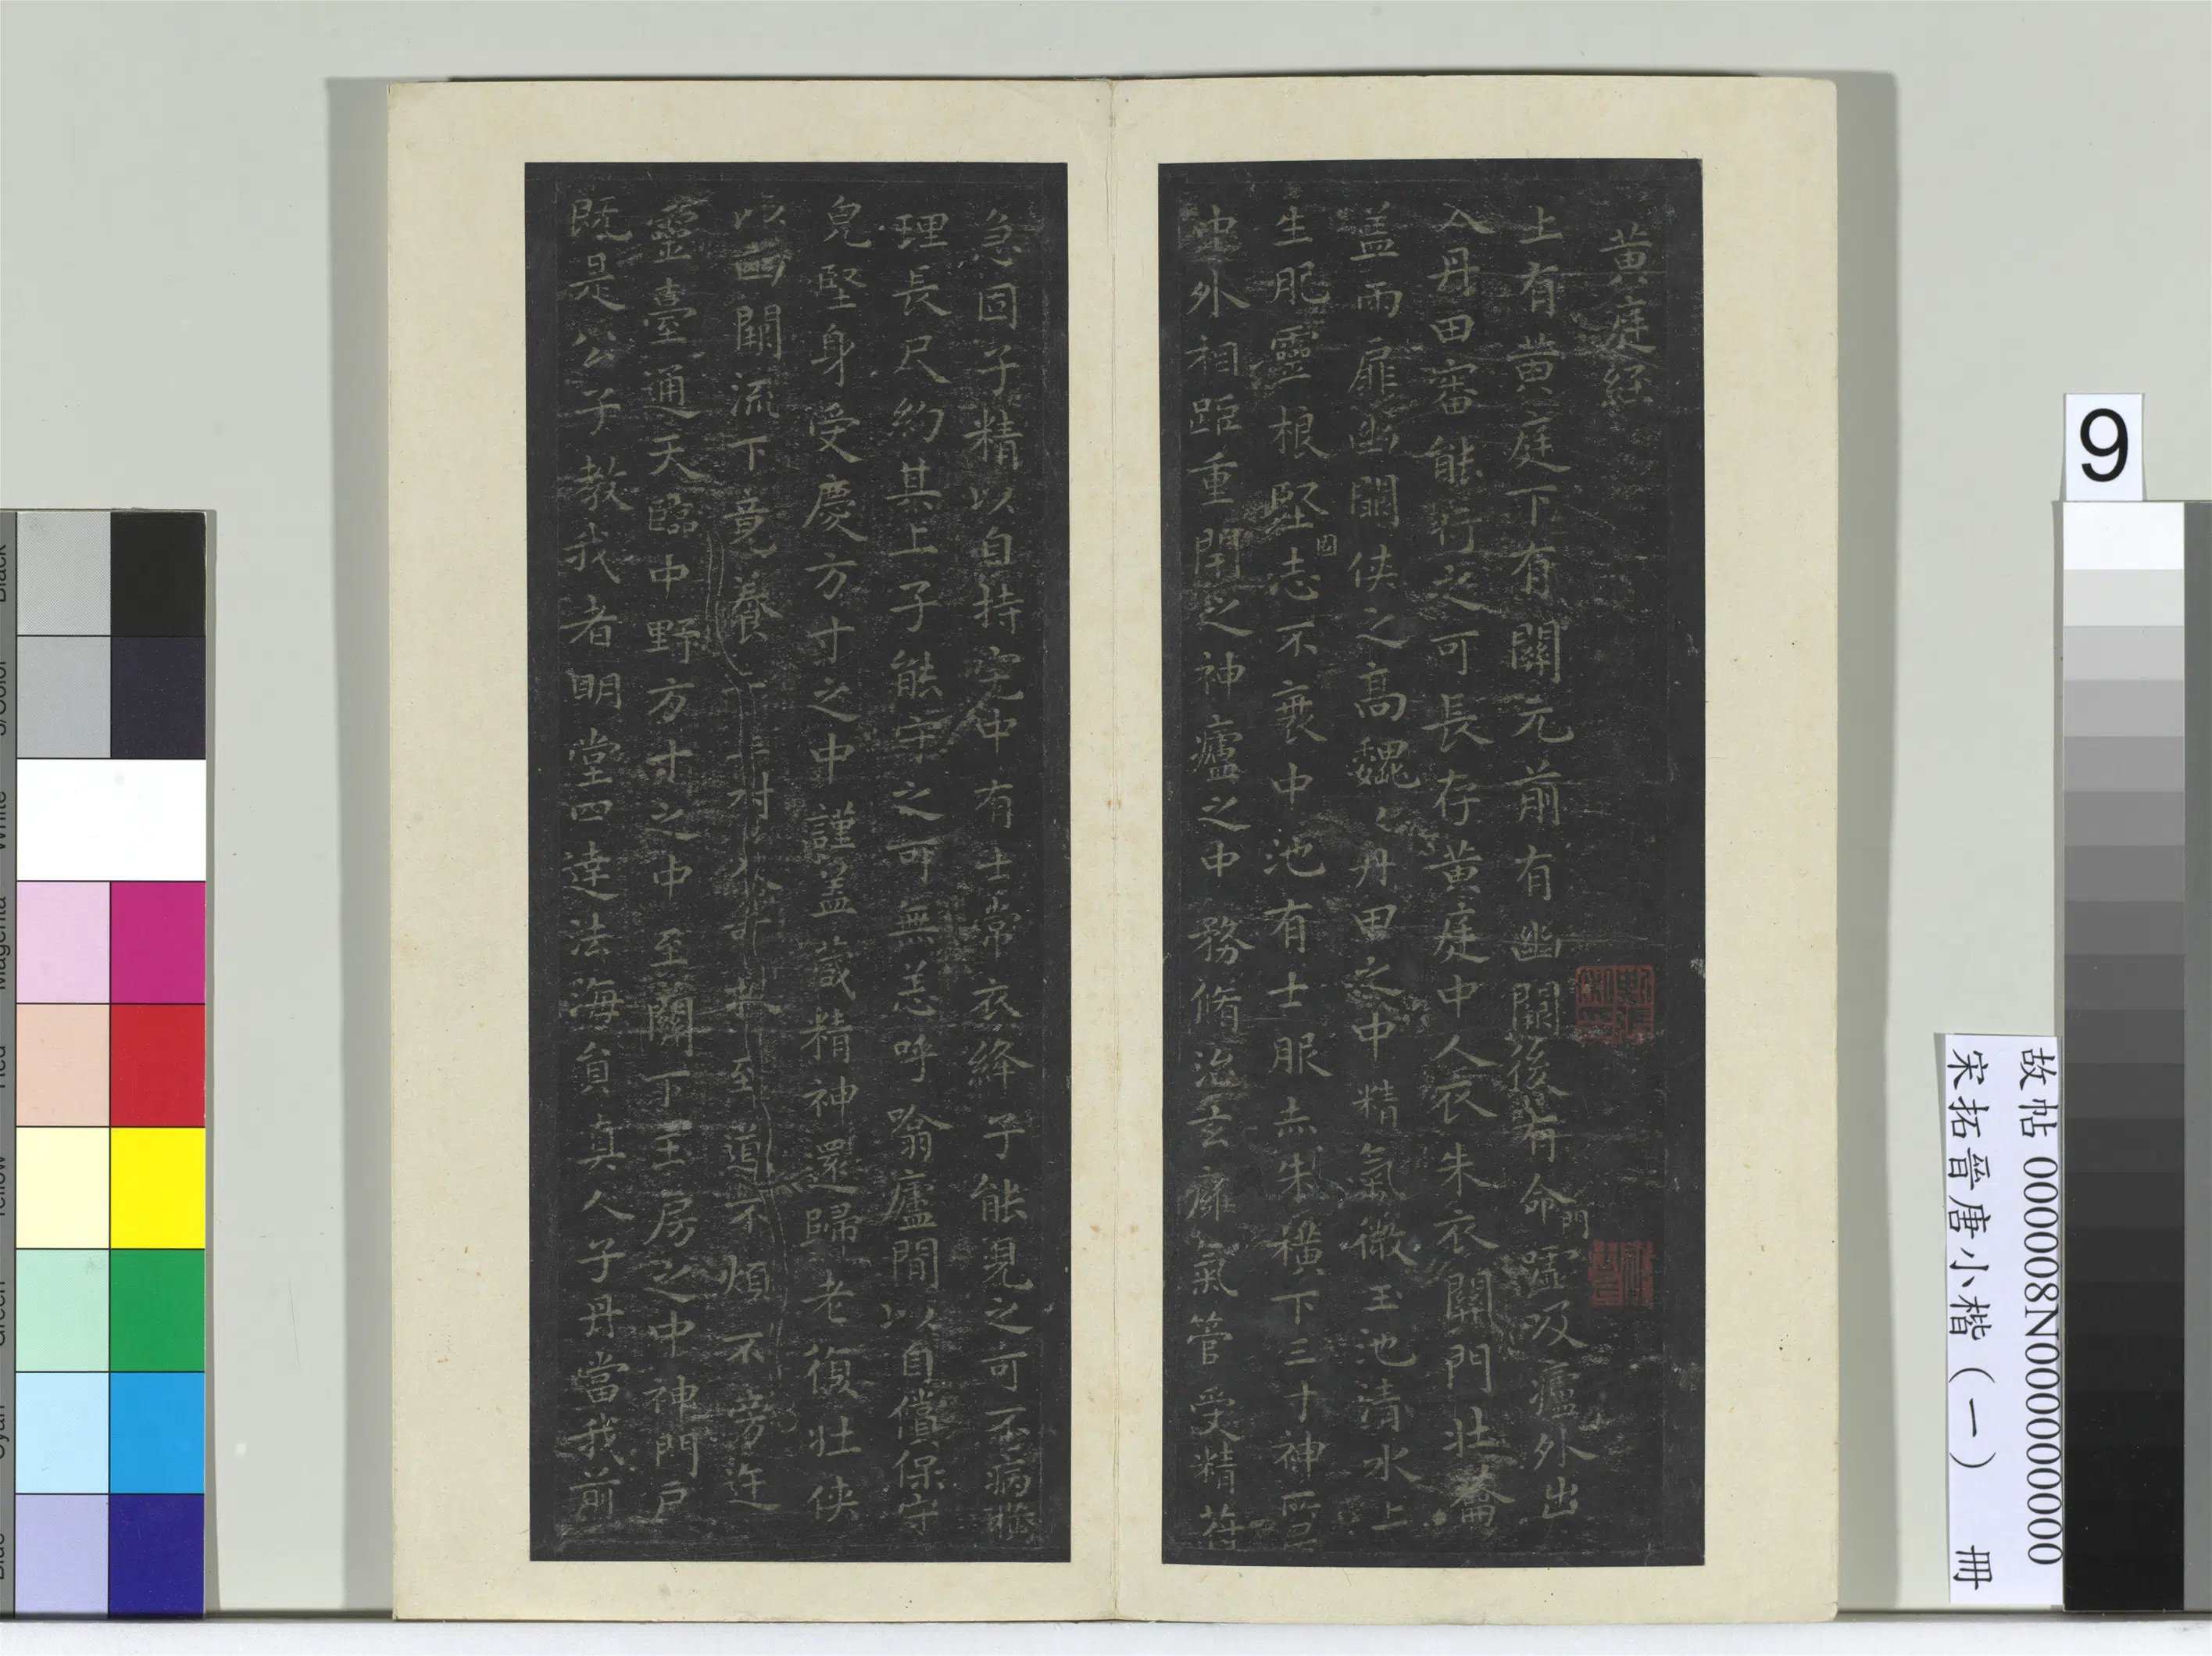 黃庭經
上有黃庭下有關元前有幽闕後有命門噓吸廬外出
入丹田審能行之可長存黃庭中人衣朱衣關門壯籥
蓋兩扉幽闕俠之高魏〻丹田之中精氣微玉池清水上
生肥靈根堅固志不衰中池有士服赤朱橫下三寸神所居
中外相距重閉之神廬之中務脩治玄廱氣管受精符
急固子精以自持宅中有士常衣絳子能見之可不病橫
理長尺約其上子能守之可無恙呼噏廬間以自償保守
皃堅身受慶方寸之中謹蓋藏精神還歸老復壯俠
以幽闕流下竟養至道不煩不旁迕
靈臺通天臨中野方寸之中至關下玉房之中神門戶
既是公子教我者明堂四達法海員真人子丹當我前
9
故帖 000008N000000000
宋拓晉唐小楷（一） 冊
Black
3/Color
White
Magenta
Red
Yellow
Green
Cyan
Blue